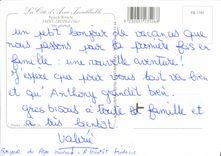 La Côte d'Azur Inoubliable
un petit bonjour de vacances que
nous passons pour la première fois en
famille : une nouvelle aventure !
J'espère que pour vous tout va bien
et qu'Anthony grandit bien.
gros bisous à toute la famille et
à très bientôt
Valérie